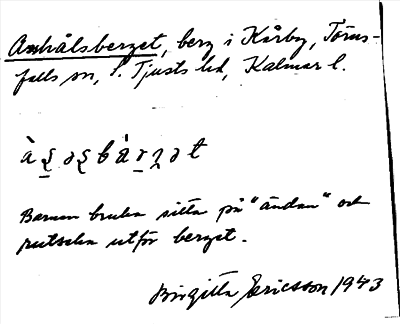 Ashålsberget, berg i Kårby, Törns-
falls sn, S. Tjusts hd, Kalmar l.
Barnen bruka sitta på "ändan" och
rutscha utför berget.
Birgitta Ericsson 1943